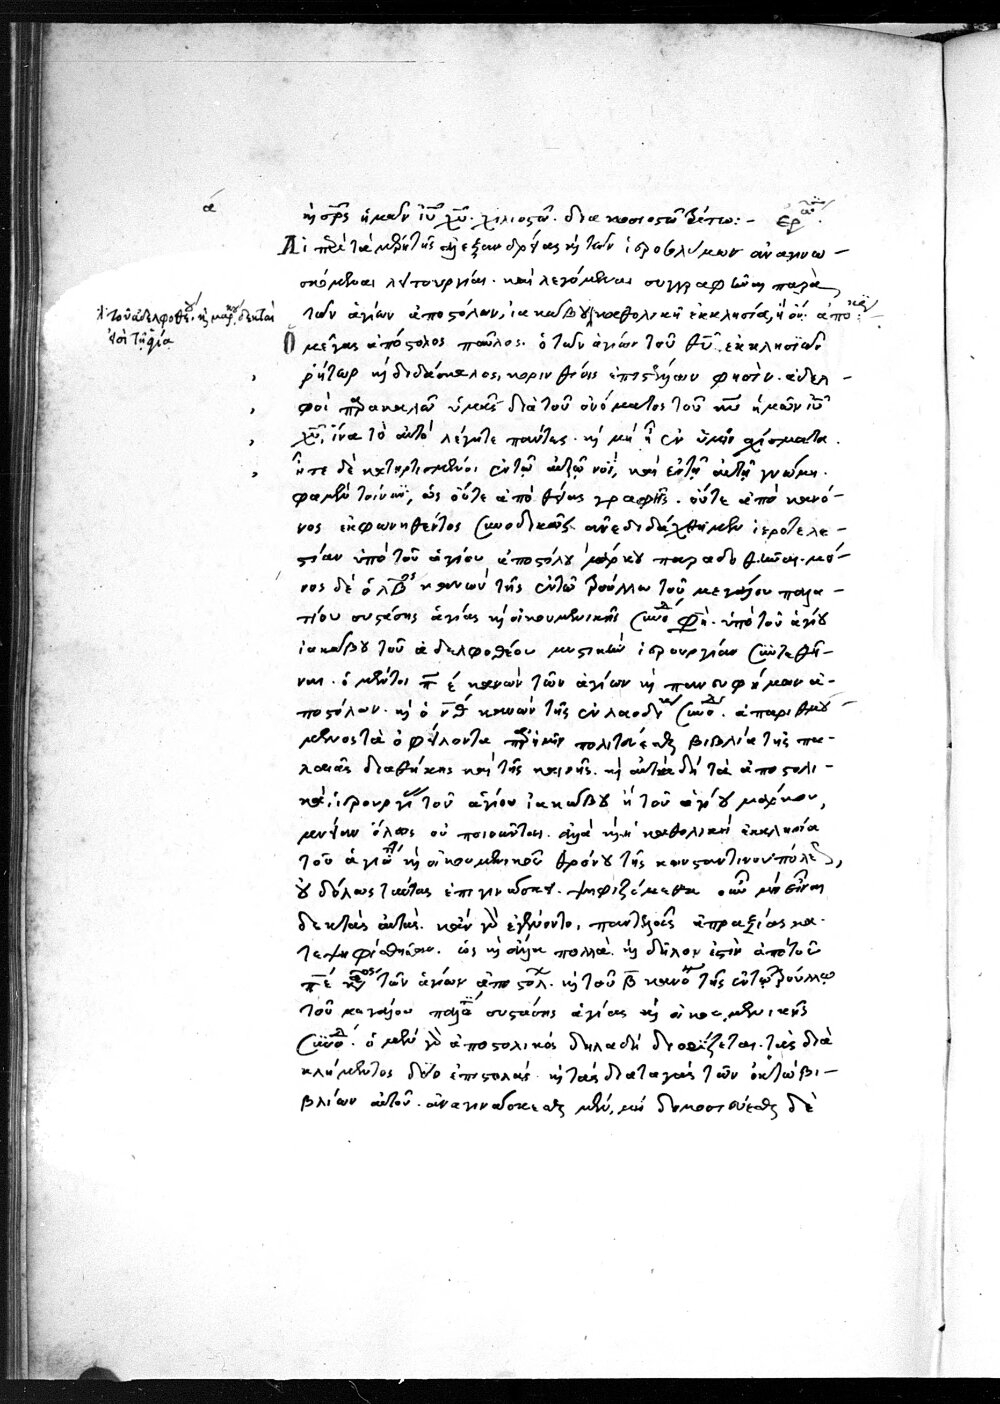 ά
κ(αὶ) σ(ωτῆ)ρ(ο)ς ἡμῶν ἰ(ησο)ῦ χ(ριστο)ῦ. χιλιοστῶ. διακοσιοστῶ
Αἱ περὶ τὰ μέρη τῆς ἀλεξανδρείας κ(αὶ) τῶν ἱεροσολύμων ἀναγινω-
σκόμεναι λειτουργίαι. καὶ λεγόμεναι συγγραφῆναι παρὰ
τῶν ἁγίων ἀποστόλων, ἰακώβου
ὁ μέγας ἀπόστολος παῦλος. ὁ τῶν ἁγίων τοῦ θ(εο)ῦ ἐκκλησιῶν
ῥήτωρ κ(αὶ) διδάσκαλος, κορινθίοις ἐπιστέλλων φησίν. ἀδελ-
φοὶ παρακαλῶ ὑμᾶς διὰ τοῦ ὀνόματος τοῦ κ(υρίο)υ ἡμῶν ἰ(ησο)ῦ
χ(ριστο)ῦ, ἵνα τὸ αὐτὸ λέγητε πάντες. κ(αὶ) μὴ ἦ ἐν ὑμῖν σχίσματα.
ἦτε δὲ κατηρτισμένοι ἐν τῶ αὐτῶ νοῒ, καὶ ἐν τῆ αὐτῆ γνώμη.
φαμὲν τοίνυν, ὡς οὔτε ἀπὸ θείας γραφῆς. οὔτε ἀπὸ κανό-
νος ἐκφωνηθέντος συνοδικῶς ἀνεδιδάχθημεν ἱεροτελε-
στίαν ὑπὸ τοῦ ἁγίου ἀποστόλου μάρκου παραδοθῆναι. μό-
νος δὲ ὁ λβ κανὼν τῆς ἐν τῶ τρούλλω τοῦ μεγάλου παλα-
τίου συστάσης ἁγίας κ(αὶ) οἰκουμενικῆς συνόδ(ου) φη(σὶ). ὑπὸ τοῦ ἁγίου
ἰακώβου τοῦ ἀδελφοθέου μυστικὴν ἱερουργίαν συντεθῆ-
ναι. ὁ μέντοι πέ κανὼν τῶν ἁγίων κ(αὶ) πανευφήμων ἀ-
ποστόλων. κ(αὶ) ὁ νθ κανὼν τῆς ἐν λαοδικ(εία) συνόδ(ου). ἀπαριθμού-
μενος τὰ ὀφείλοντα παρ' ἡμῖν πολιτεύεσθαι βιβλία τῆς πα-
λαιᾶς διαθήκης καὶ τῆς καινῆς. κ(αὶ) αὐτὰ δὴ τὰ ἀποστολι-
κά, ἱερουργίας τοῦ ἁγίου ἰακώβου ἢ τοῦ ἁγίου μάρκου,
μνείαν ὅλως οὐ ποιοῦνται. ἀλλὰ κ(αὶ) ἡ καθολικὴ ἐκκλησία
τοῦ ἁγιω(τά)τ(ου) κ(αὶ) οἰκουμενικοῦ θρόνου τῆς κωνσταντινουπόλεως,
οὐδόλως ταύτας ἐπιγινώσκει. ψηφιζόμεθα οὖν μὴ εἶναι
δεκτὰς αὐτὰς. κἂν γὰρ ἐγένοντο, παντελοῦς ἀπραξίας κα-
τεψηφίσθησαν. ὡς κ(αὶ) ἄλλα πολλά. κ(αὶ) δῆλόν ἐστιν ἀπὸ τοῦ
πέ καν(όν)ος τῶν ἁγίων ἀποστόλ(ων). κ(αὶ) τοῦ β καν(όνος) τῆς ἐν τῶ τρούλλω
τοῦ μεγάλου παλα(τίου) συστάσης ἁγίας κ(αὶ) οἰκουμενικῆς
συνόδ(ου). ὁ μὲν γὰρ ἀποστολικὸς δηλαδὴ διορίζεται. τὰς διὰ
κλήμεντος δύο ἐπιστολάς. κ(αὶ) τὰς διαταγὰς τῶν ὀκτὼ βι-
βλίων αὐτοῦ. ἀναγινώσκεσθαι μὲν, μὴ δημοσιεύεσθαι δὲ